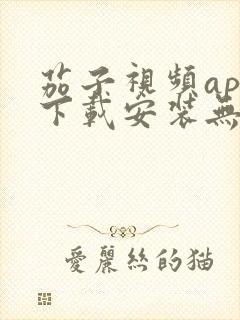 茄子視頻ap
下載安裝無
愛麗絲的猫